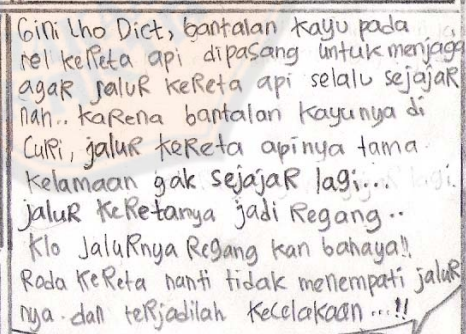 Gini Lho Dict, bantalan kayu pada
rel keReta api dipasang untuk menjaga
agaR jaluR keReta api selalu sejajaR
nah.. kaRena bantalan kayunya di
CuRi, jaluR keReta apinya lama
kelamaan gak sejajaR lagi...
jaluR keRetanya jadi Regang..
klo JaluRnya Regang kan bahaya!!
Roda KeReta nanti tidak menempati jaluR
nya. dan teRjadilah kecelakaan...!!